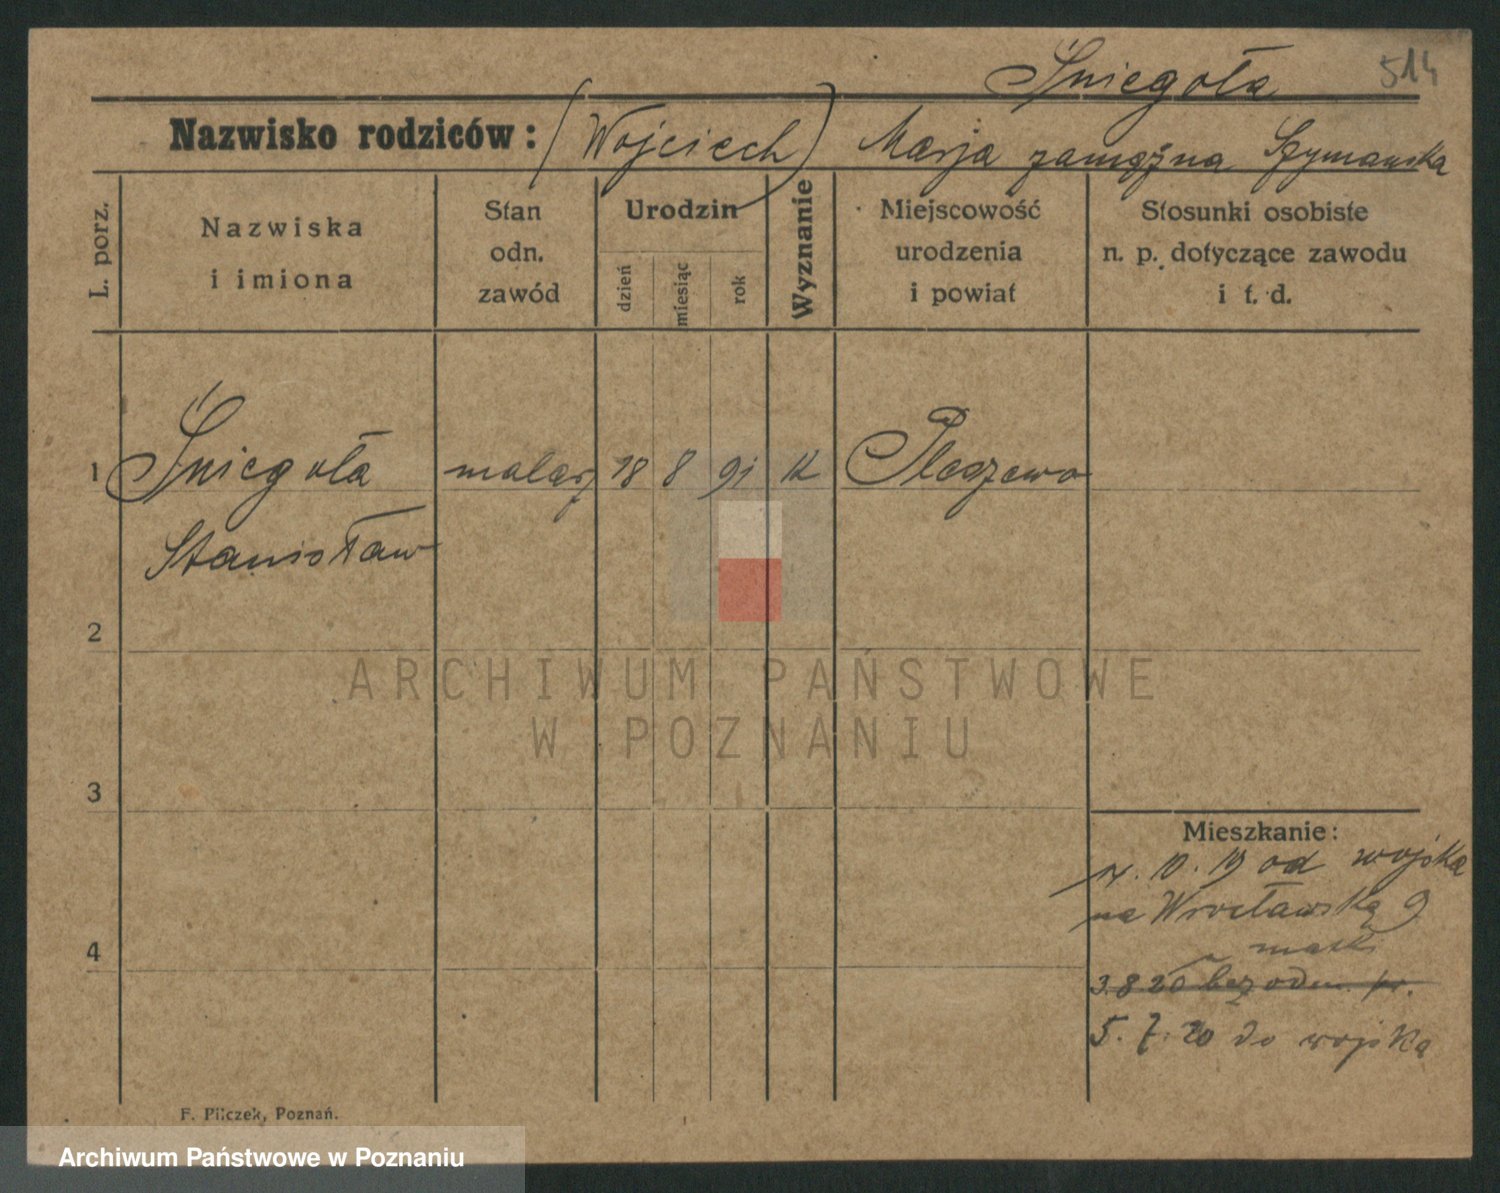 Śniegoła 514
Nazwisko rodziców: (Wojciech) Marja zamężna Szymańska
L. porz.
Nazwiska
i imiona
Stan
odn.
zawód
Urodzin
dzień
miesiąc
rok
Wyznanie
Miejscowość
urodzenia
i powiat
Stosunki osobiste
n. p. dotyczące zawodu
i t. d.
1 Śniegoła malarz 18 8 91 K Pleszewo
Stanisław
2
3
4
Mieszkanie:
10. 19 od wojska
na Wrocławską 9
matki
3.8 20 bez odm.
5. 7. 20 do wojska
F. Pilczek, Poznań.
ARCHIWUM PAŃSTWOWE
W POZNANIU
Archiwum Państwowe w Poznaniu